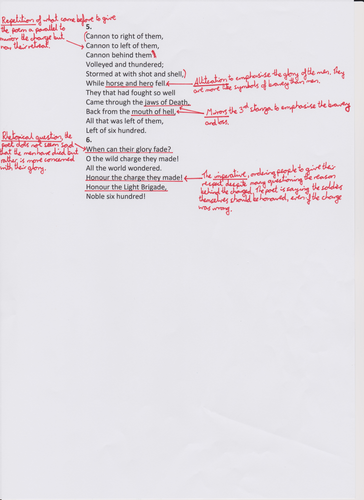 Repetition of what came before to give
the poem a parallel to
mirror the charge but
now their retreat.
5.
Cannon to right of them,
Cannon to left of them,
Cannon behind them
Volleyed and thundered;
Stormed at with shot and shell,
While horse and hero fell,
They that had fought so well
Came through the jaws of Death,
Back from the mouth of hell,
All that was left of them,
Left of six hundred.
Alliteration to emphasise the glory of the men. They
are more like symbols of bravery than men.
Mirrors the 3rd stanza to emphasise the bravery
and loss.
Rhetorical question, the
poet does not seem sad
that the men have died but
rather, is more concerned
with their glory.
6.
When can their glory fade?
O the wild charge they made!
All the world wondered.
Honour the charge they made!
Honour the Light Brigade,
Noble six hundred!
The imperative, ordering people to give their
respect despite many questioning the reason
behind the charged. The poet is saying the soldiers
themselves should be honoured, even if the charge
was wrong.